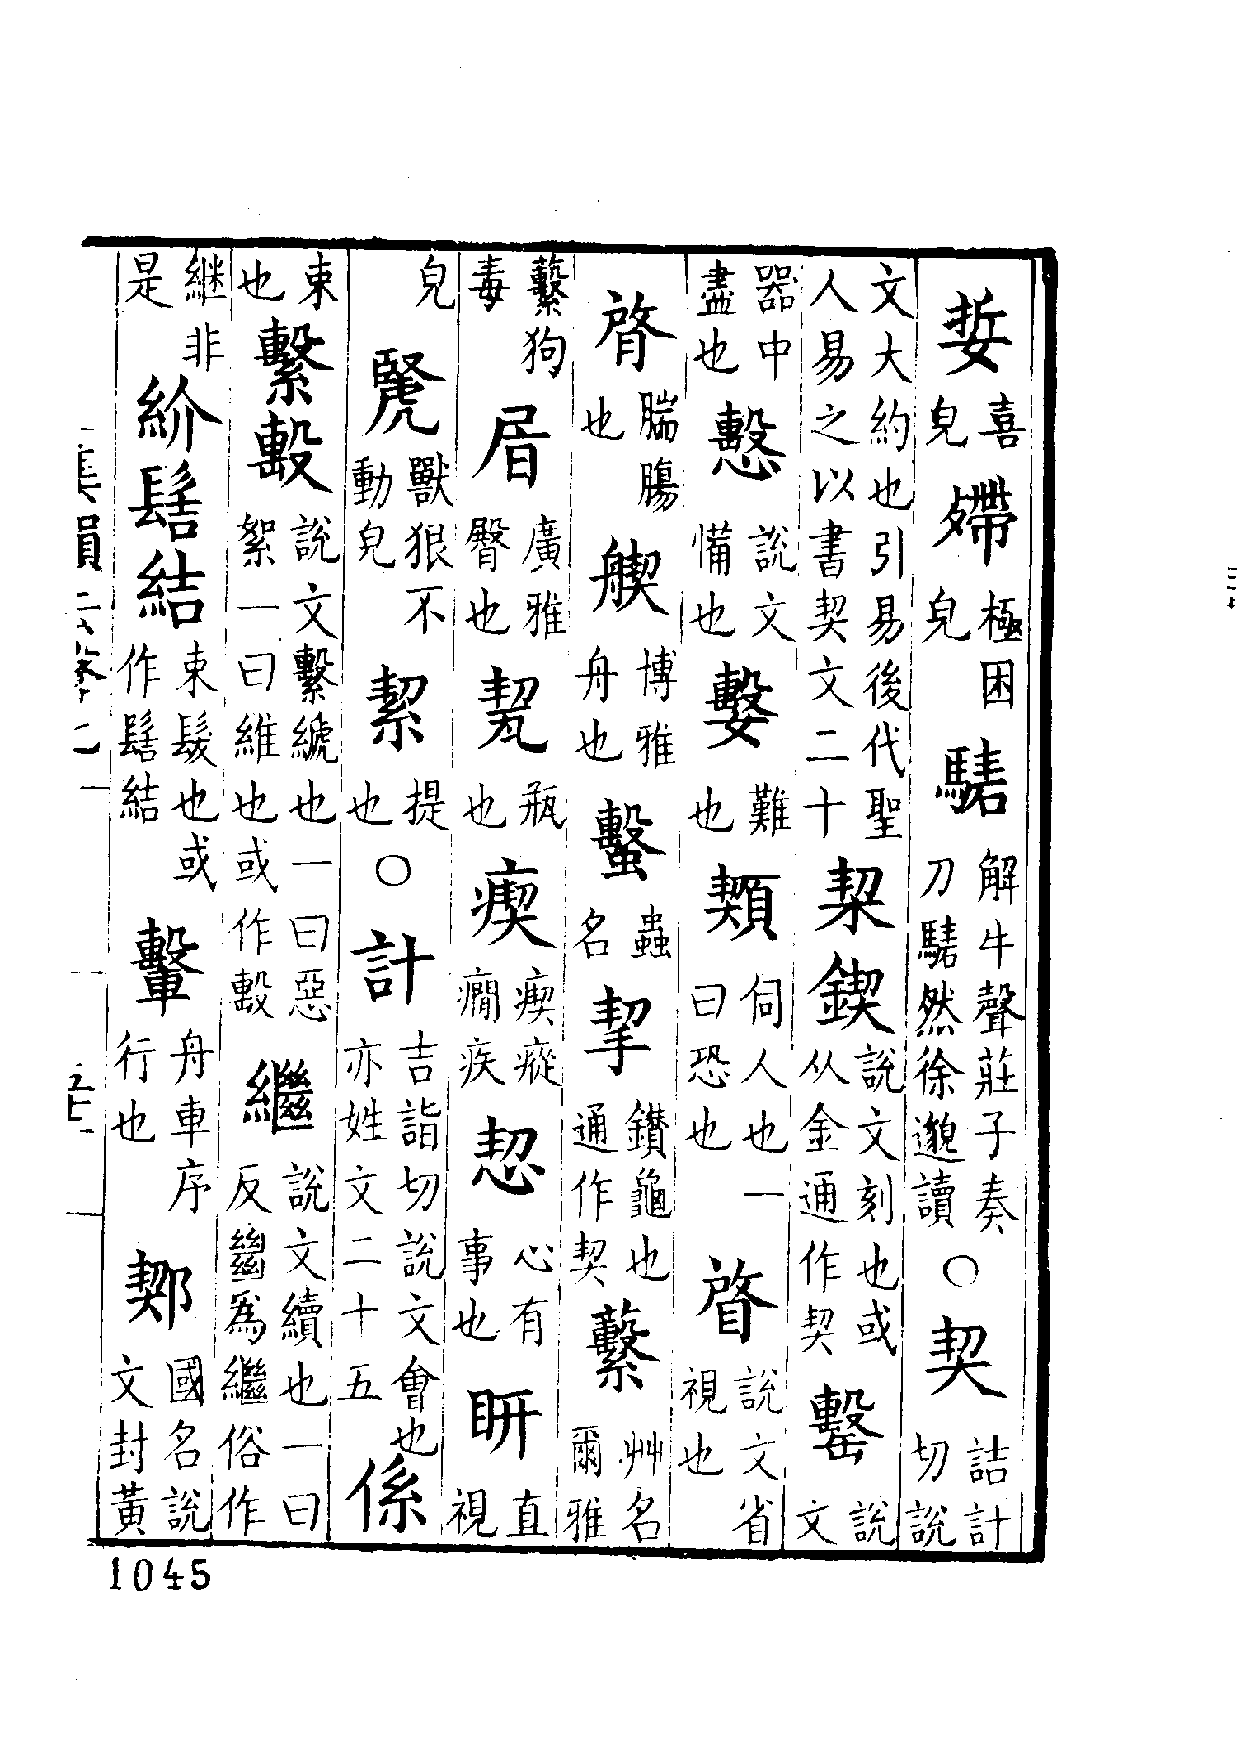 娎喜皃殢極困皃騞解牛聲莊子奏刀騞然徐邈讀○契詰計切說
文大約也引易後代聖人易之以書契文二十栔鍥說文刻也或从金通作契罊說文
器中盡也說文備也難也䫔伺人也一曰恐也䁈說文省視也
腨腸也博雅舟也蟿蟲名挈鑽龜也通作契蘻艸名爾雅
蘻狗毒廣雅臀也㼤瓶也瘈瘈瘲癇疾恝心有事也直視
皃獸狠不動皃絜提也○計吉詣切說文會也亦姓文二十五係
束也繫毄說文繫𦃇也一曰惡絮一曰維也或作毄繼說文續也一曰反𢇍爲繼俗作
継非是紒髻結束髮也或作髻結轚舟車序行也國名說文封黃
集韻
1045